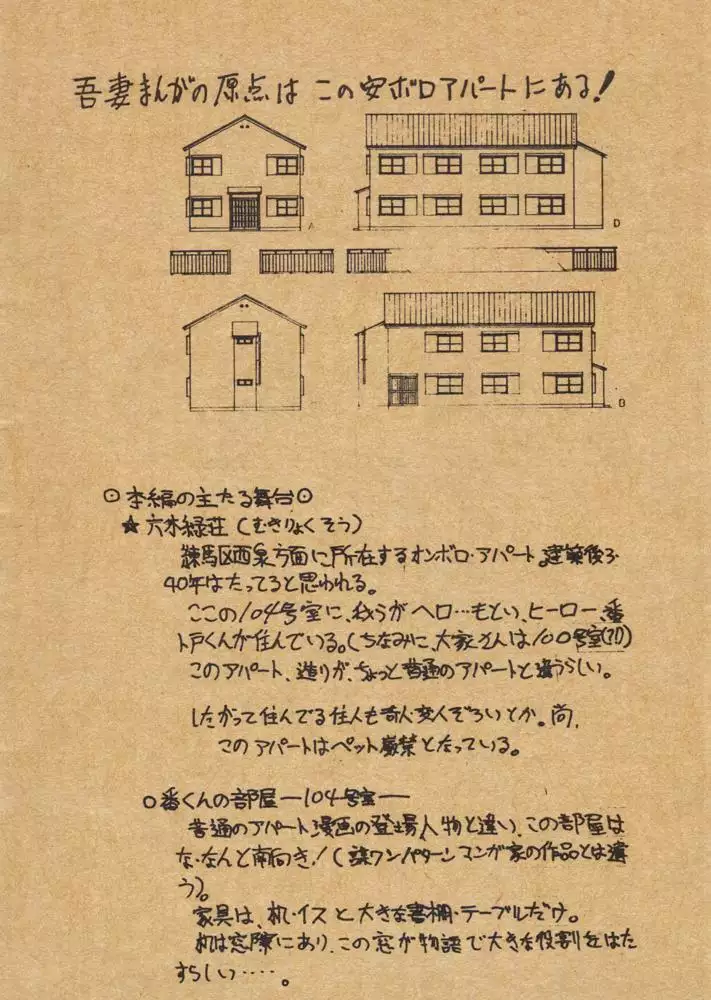 吾妻まんがの原点は この安ボロアパートにある！
A
D
B
⊙本編の主たる舞台⊙
★六本緑荘（むきりょくそう）
練馬区西泉方面に所在するオンボロ・アパート。建築後
40年はたってると思われる。
ここの104号室に、我らがヘロ…もとい、ヒーロー、番
戸くんが住んでいる。（ちなみに、大家さんは100号室(?!)）
このアパート、造りが、ちょっと普通のアパートと違うらしい。
したがって住んでる住人も奇人・変人ぞろいとか。尚、
このアパートはペット厳禁となっている。
○番くんの部屋―104号室―
普通のアパート漫画の登場人物と違い、この部屋は
な・なんと南向き！（某ワンパターンマンガ家の作品とは違
う）。
家具は、机・イスと大きな書棚・テーブルだけ。
机は窓際にあり、この窓が物語で大きな役割をはた
すらしい……。